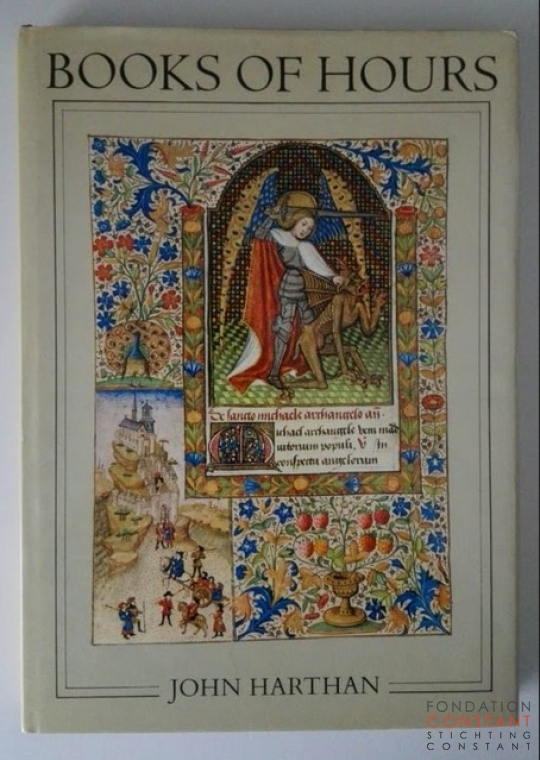 BOOKS OF HOURS
De sancto michaele archangelo añ.
Michael archangele veni
iutorium populi. V̷ In
conspectu angelorum
JOHN HARTHAN
FONDATION
CONSTANT
STICHTING
CONSTANT